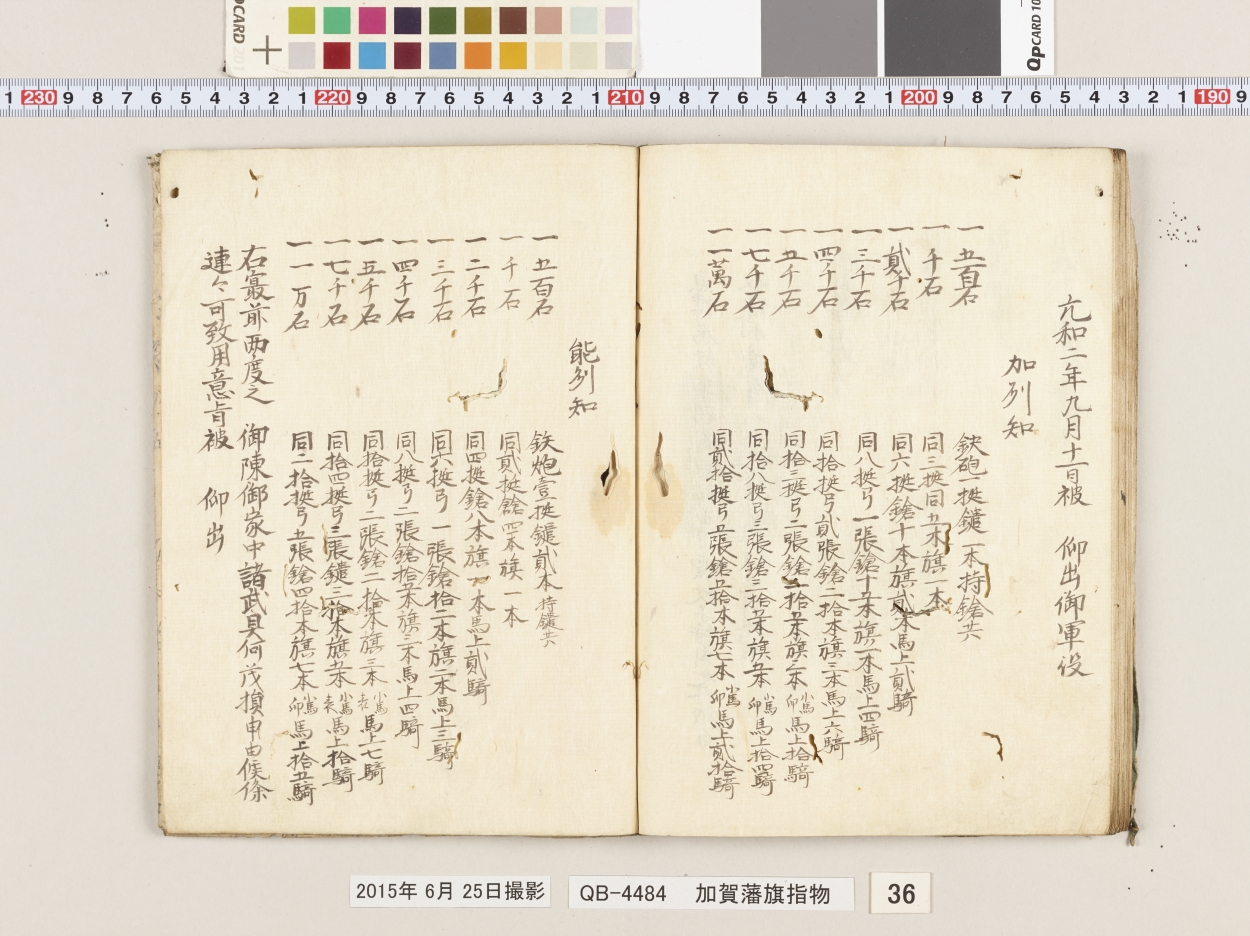 元和二年九月十一日被　仰出御軍役
加列知
一 五百石　鉄砲一挺鑓一本持鎗共
一 千石　同三挺同五本旗一本
一 貳千石　同六挺鎗十本旗貳本馬上貳騎
一 三千石　同八挺弓一張鎗十五本旗二本馬上四騎
一 四千石　同拾挺弓貳張鎗二拾本旗三本馬上六騎
一 五千石　同拾三挺弓二張鎗二拾五本旗三本小馬印馬上拾騎
一 七千石　同拾八挺弓三張鎗三拾五本旗五本小馬印馬上拾四騎
一 一萬石　同貳拾挺弓五張鎗五拾本旗七本小馬印馬上貳拾騎
能列知
一 五百石　鉄炮壹挺鑓貳本持鑓共
一 千石　同貳挺鎗四本旗一本
一 二千石　同四挺鎗八本旗一本馬上貳騎
一 三千石　同六挺弓一張鎗拾二本旗二本馬上三騎
一 四千石　同八挺弓二張鎗拾五本旗三本馬上四騎
一 五千石　同拾挺弓二張鎗二拾本旗三本小馬馬上七騎
一 七千石　同拾四挺弓三張鑓三拾本旗五本小馬馬上拾騎
一 一万石　同二拾挺弓五張鎗四拾本旗七本小馬印馬上拾五騎
右最前両度之　御陳御家中諸武具何茂損申由候條
連々可致用意旨被　仰出
QPCARD 201
QPCARD 10
1 230 9 8 7 6 5 4 3 2 1 220 9 8 7 6 5 4 3 2 1 210 9 8 7 6 5 4 3 2 1 200 9 8 7 6 5 4 3 2 1 190 9
2015年 6月 25日撮影
QB-4484　加賀藩旗指物
36